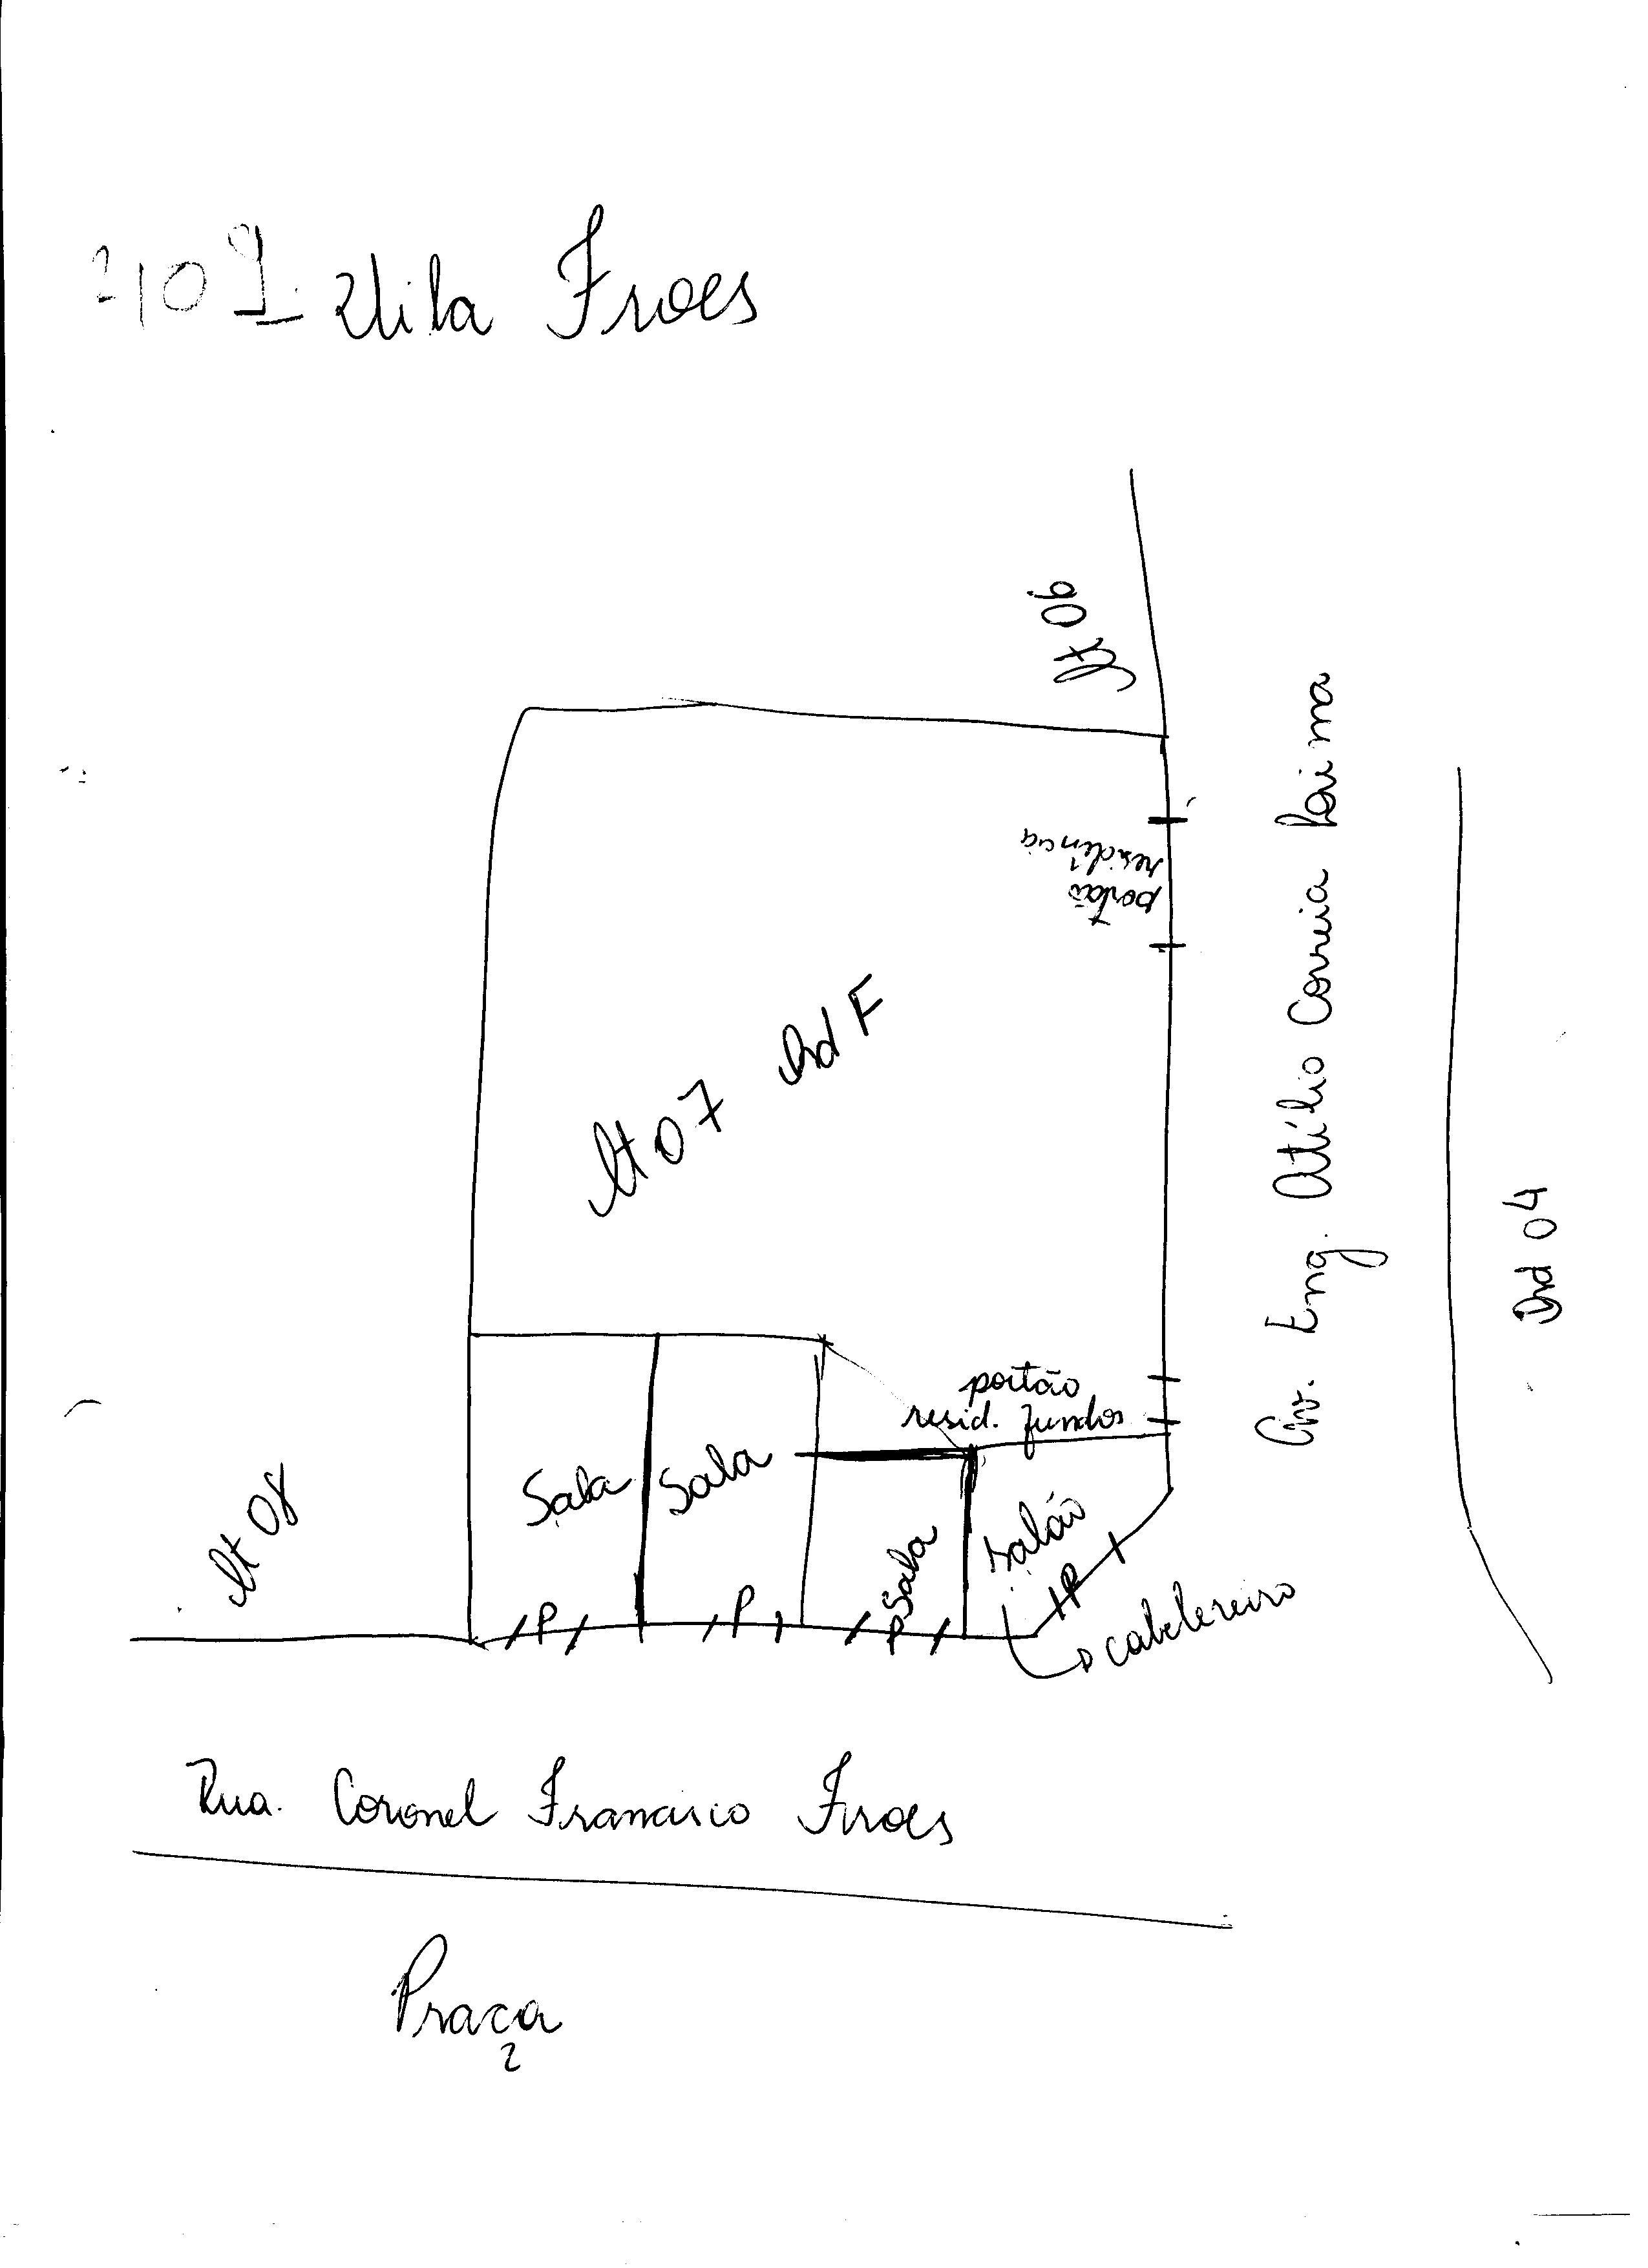 Vila Froes
lt 06
portão
residência
Av. Eng. Atílio Correia Lima
lt 07 Qd F
Qd 04
portão
resid. fundos
Sala
Sala
Sala
salão
cabelereiro
lt 08
P
P
P
P
Rua. Coronel Francisco Froes
Praça